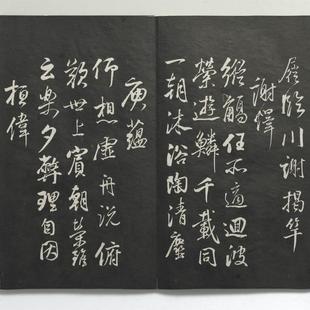 屡臨川謝揭竿
謝繹
縱觴任所適迴波
縈遊鱗千載同
一朝沐浴陶清塵
庾蘊
仰想虛舟說俯
歎世上賓朝榮雖
云樂夕弊理自因
桓偉